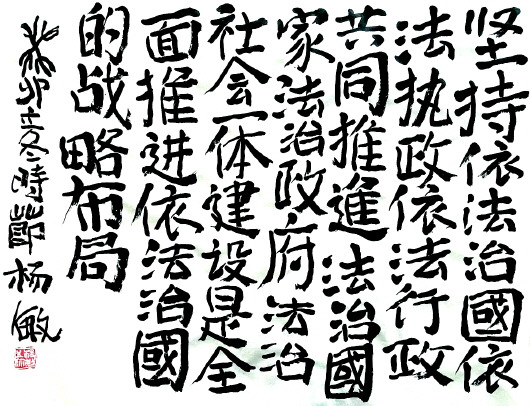 坚持依法治國依
法执政依法行政
共同推進法治國
家法治政府法治
社会一体建设是全
面推进依法治國
的战略布局
癸卯立冬時節杨敏